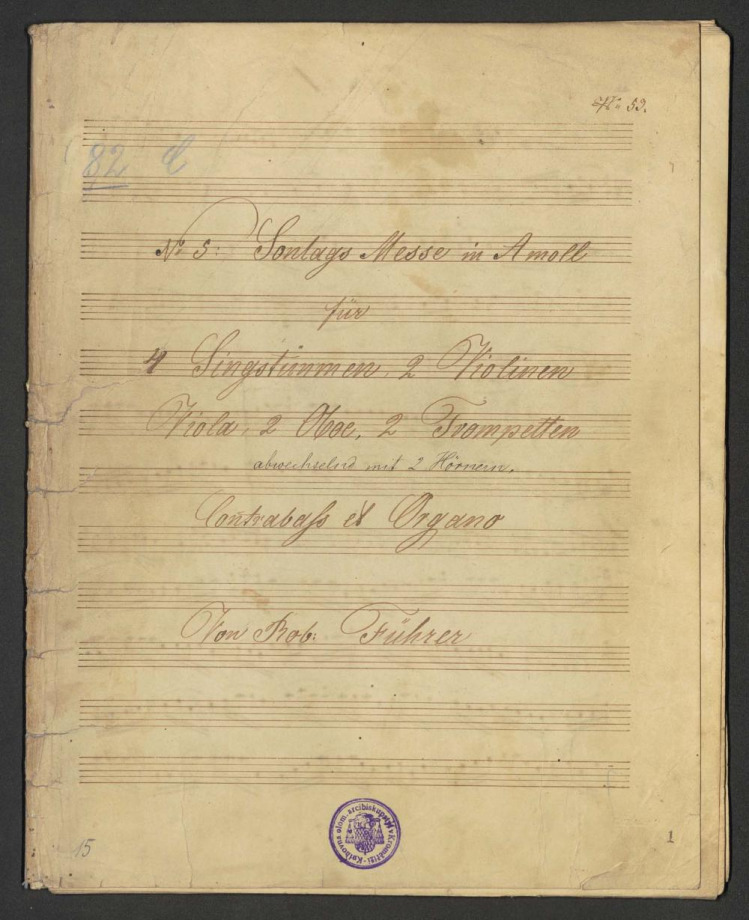 No 53.
82 C
No 5: Sontags Messe in A moll
für
4 Singstimmen, 2 Violinen
Viola, 2 Oboe, 2 Trompetten
abwechselnd mit 2 Hörnern.
Contrabaſs et Organo
Von Rob: Führer
Knihovna olom. arcibiskupství v Kroměříži
15
1